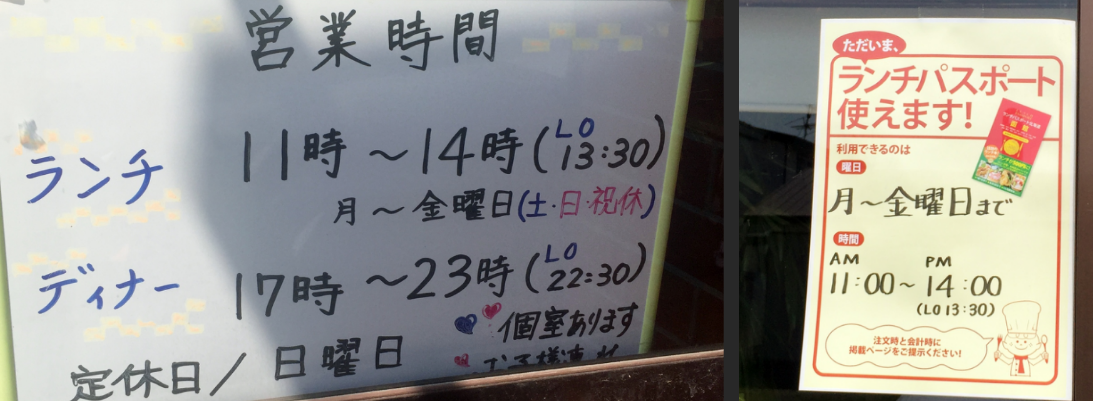 営業時間
ランチ 11時 ~ 14時 (LO 13:30)
月 ~ 金曜日 (土・日・祝休)
ディナー 17時 ~ 23時 (LO 22:30)
個室あります
定休日/日曜日
お子様連れ
ただいま、
ランチパスポート
使えます!
利用できるのは
曜日
月~金曜日まで
時間
AM PM
11:00~14:00
(LO 13:30)
注文時と会計時に
掲載ページをご提示ください!